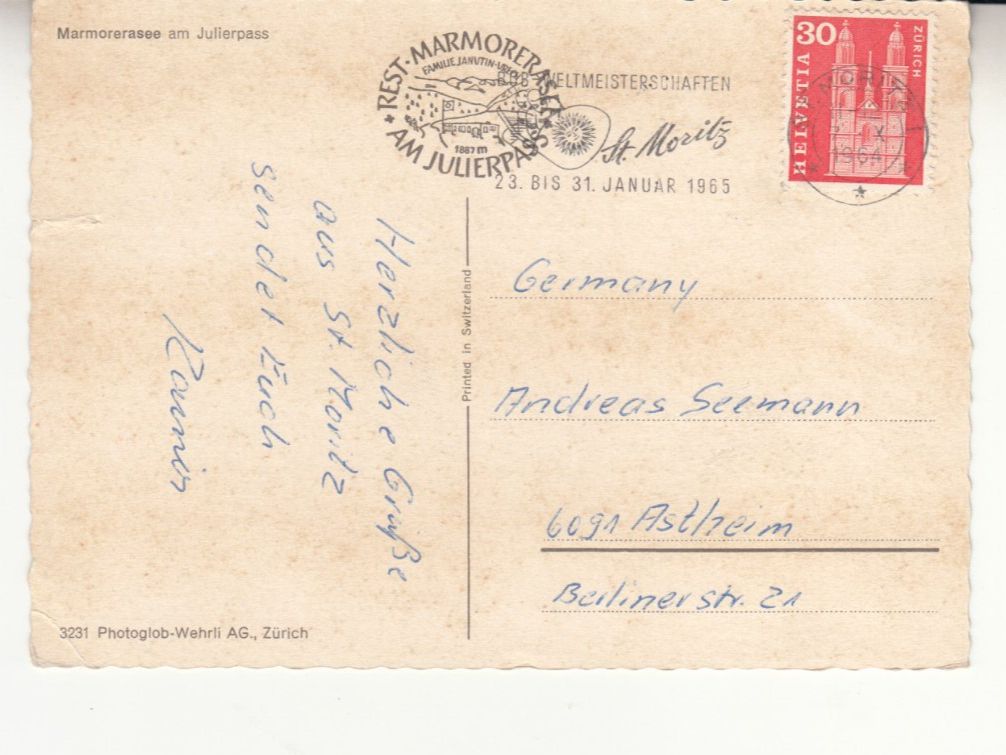 Marmorerasee am Julierpass
REST. MARMORERASEE
AM JULIERPASS
1887 m
BOB-WELTMEISTERSCHAFTEN
St. Moritz
23. BIS 31. JANUAR 1965
30
ZÜRICH
HELVETIA
1964
Herzliche Grüße
aus St. Moritz
sendet Euch
Printed in Switzerland
Germany
Andreas Seemann
6091 Astheim
Berlinerstr. 21
3231 Photoglob-Wehrli AG., Zürich